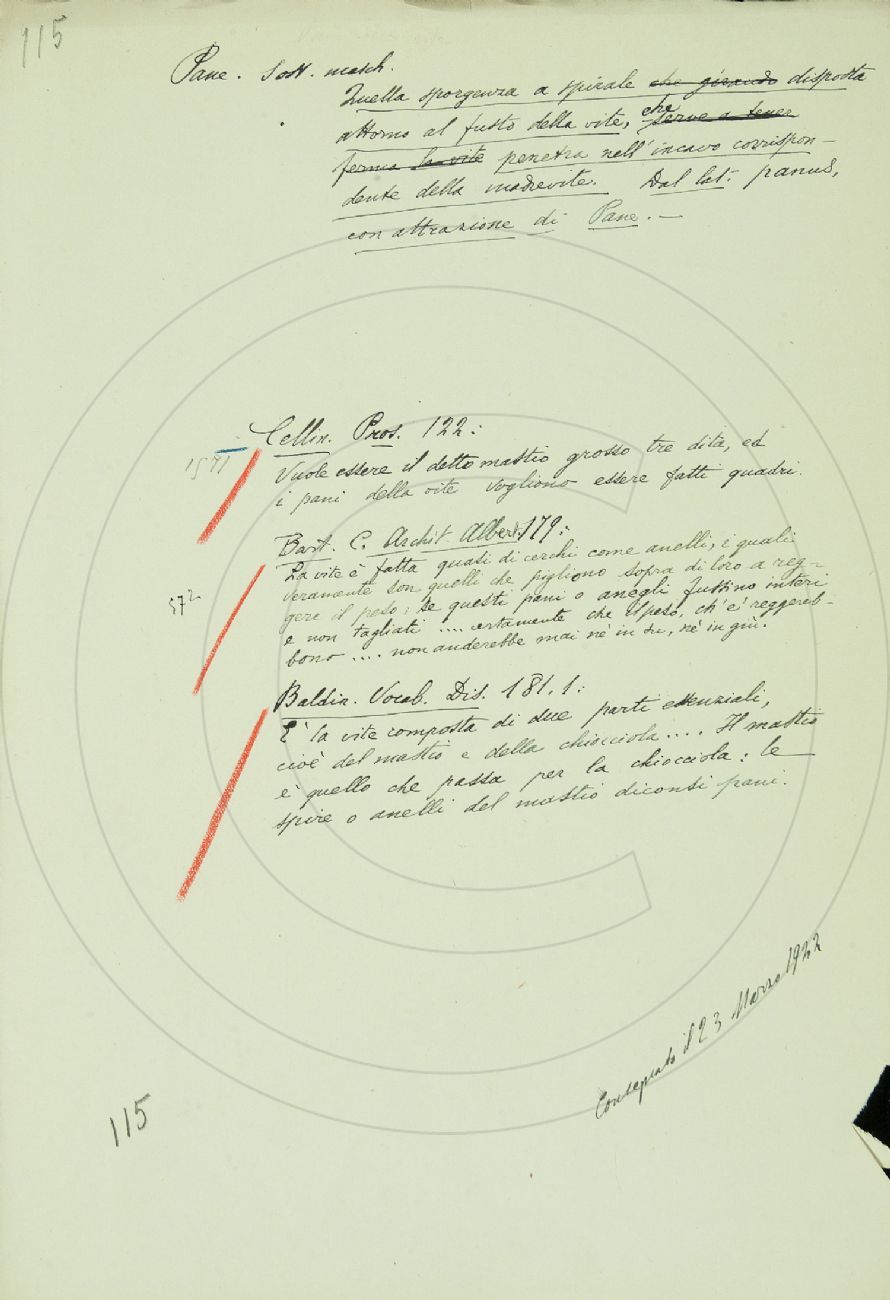 115
Pane. Sost. masch.
Quella sporgenza a spirale che girando disposta
attorno al fusto della vite, che serve a tener
ferma la vite penetra nell'incavo corrispon-
dente della madrevite. Dal lat. panus,
con attrazione di Pane. —
Cellin. Pros. 122:
1571
Vuole essere il detto mastio grosso tre dita, ed
i pani della vite vogliono essere fatti quadri.
Bart. C. Archit. Albert. 179:
572
La vite è fatta quasi di cerchi come anelli, i quali
veramente son quelli che pigliono sopra di loro a reg-
gere il peso: se questi pani o anegli fussino interi
e non tagliati .... certamente che il peso, ch'e' reggereb-
bono .... non anderebbe mai nè in su, nè in giù.
Baldin. Vocab. Dis. 181.1:
È la vite composta di due parti essenziali,
cioè del mastio e della chiocciola .... Il mastio
è quello che passa per la chiocciola: le
spire o anelli del mastio diconsi pani.
Consegnato il 23 Marzo 1922
115